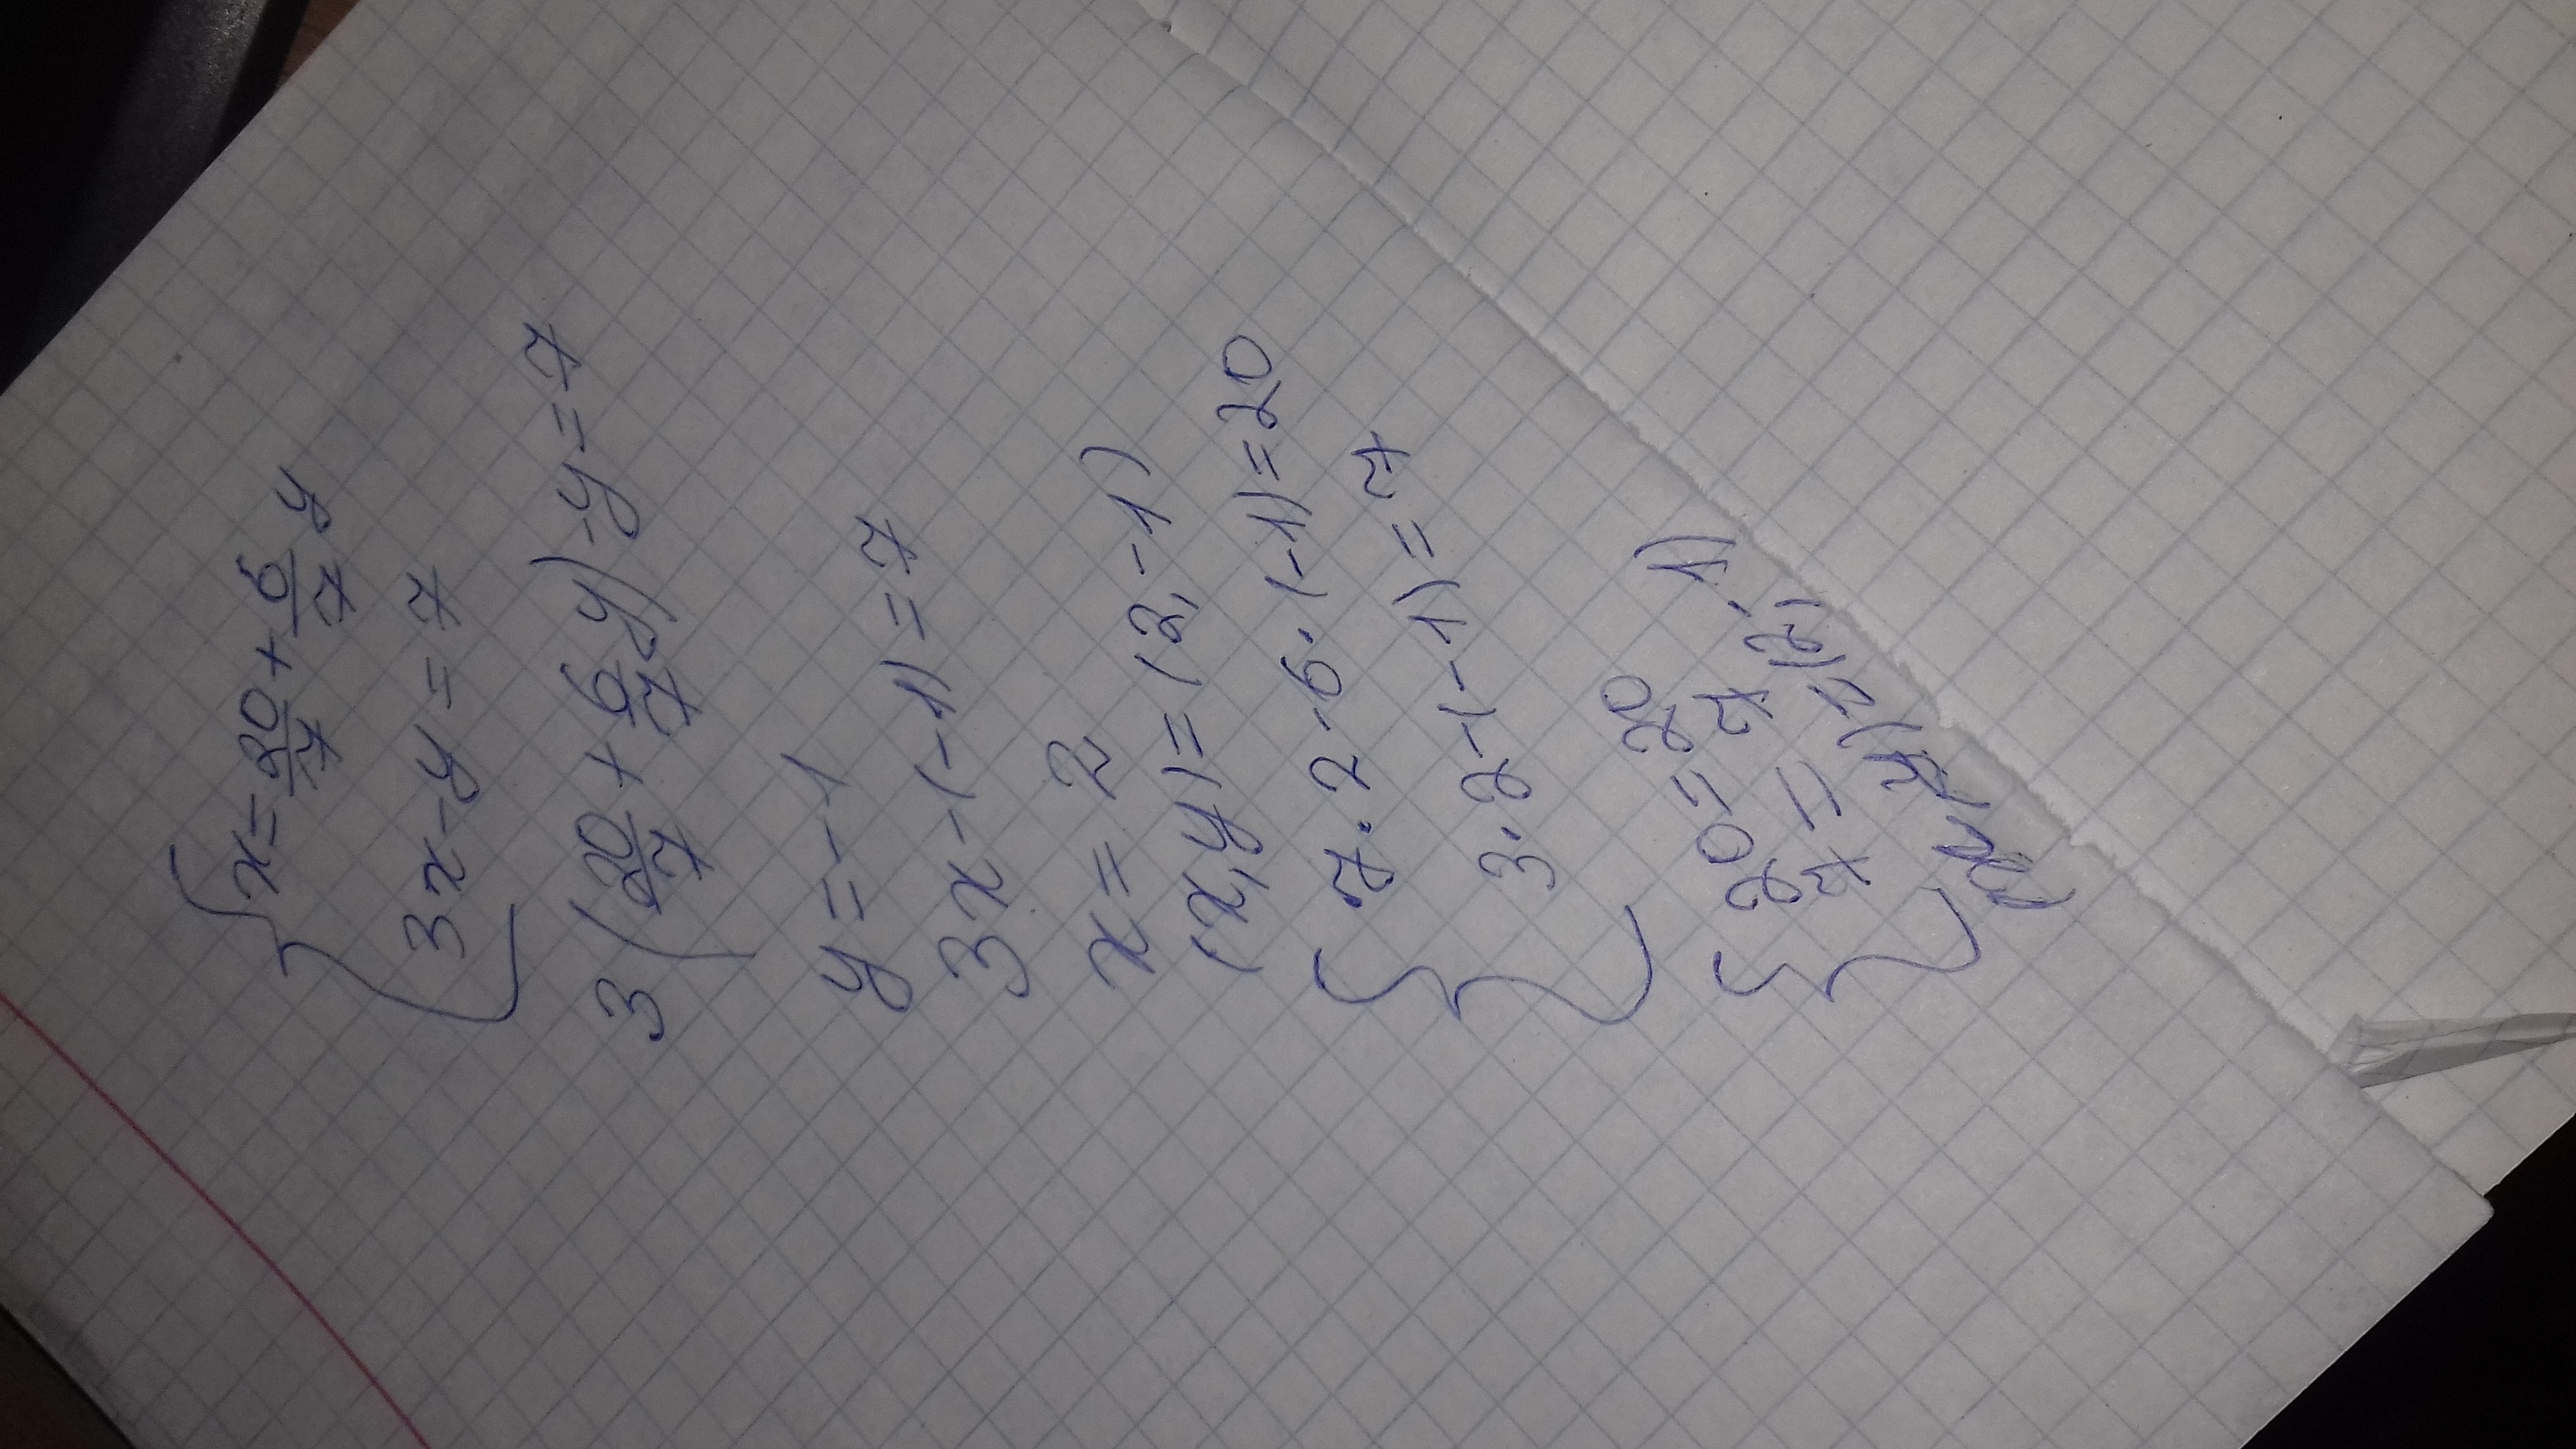 { x = 20/7 + 6/7 y
3x - y = 7
3(20/7 + 6/7 y) - y = 7
y = -1
3x - (-1) = 7
x = 2
(x, y) = (2, -1)
{ 7 · 2 - 6 · (-1) = 20
3 · 2 - (-1) = 7
{ 20 = 20
7 = 7
(x, y) = (2, -1)